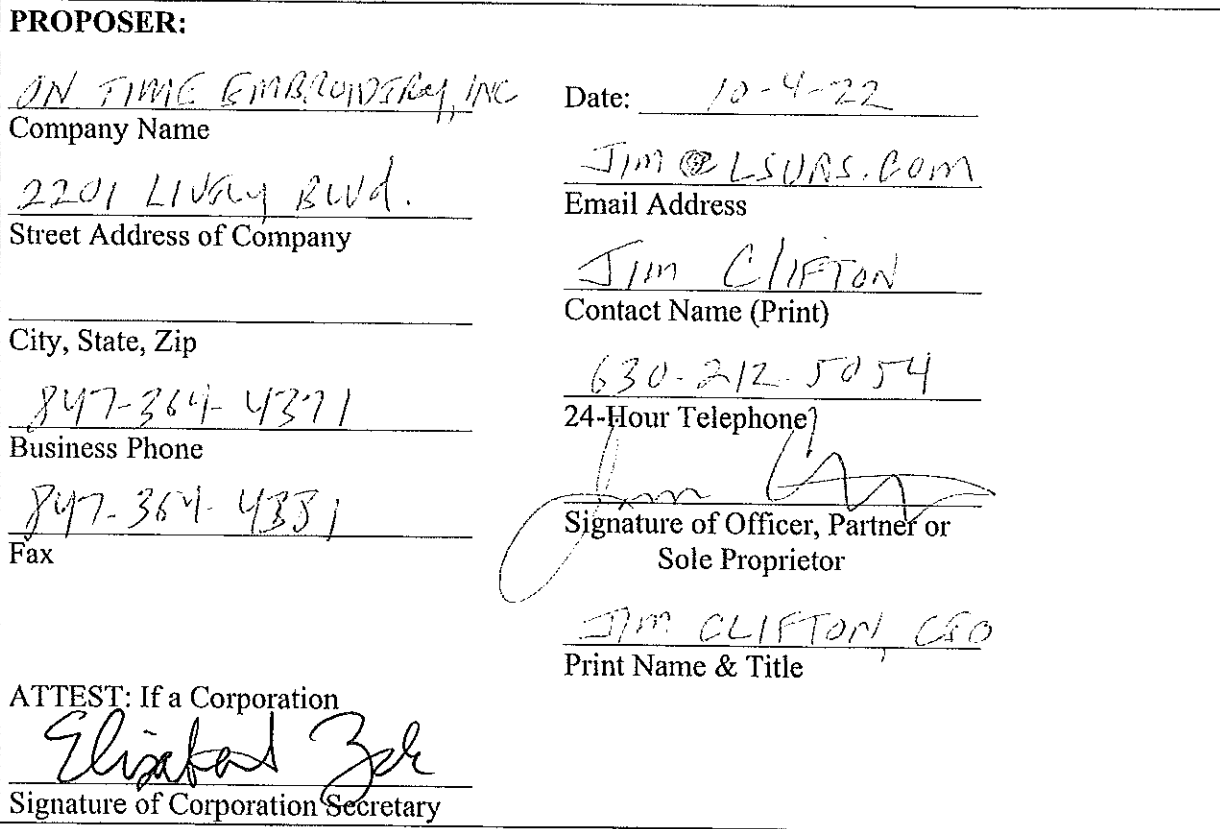 PROPOSER:
ON TIME EMBROIDERY, INC
Company Name
2201 LIVELY BLVD.
Street Address of Company
City, State, Zip
847-364-4371
Business Phone
847-364-4381
Fax
ATTEST: If a Corporation
Elizabeth
Signature of Corporation Secretary
Date: 10-4-22
JIM@LSURS.COM
Email Address
JIM CLIFTON
Contact Name (Print)
630-212-5054
24-Hour Telephone
Jim
Signature of Officer, Partner or
Sole Proprietor
JIM CLIFTON, CEO
Print Name & Title